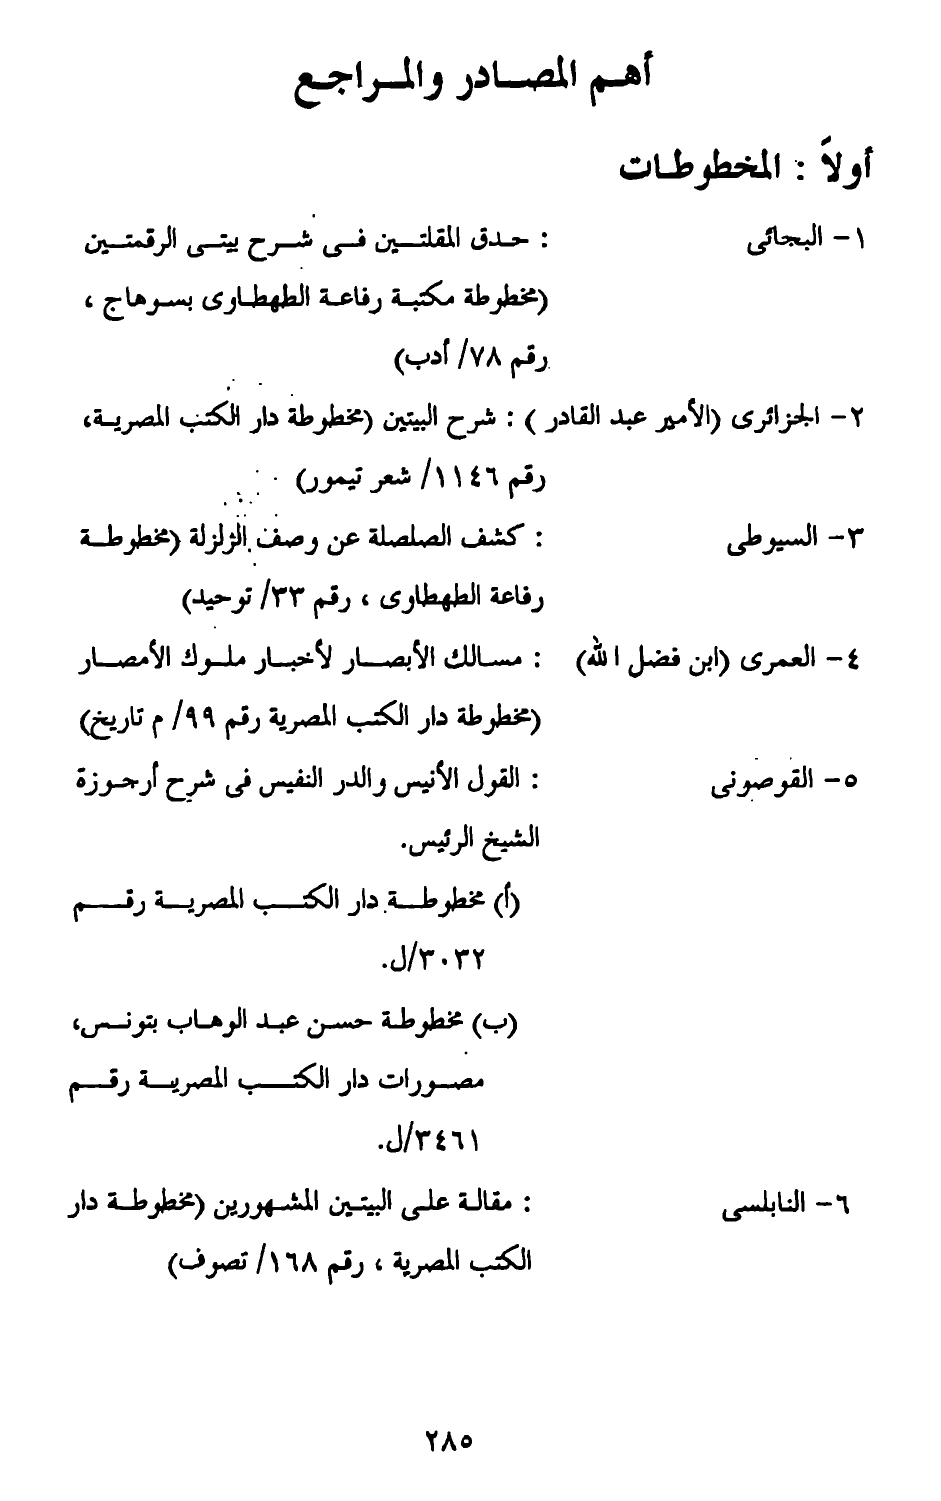 أهم المصادر والمراجع
أولاً : المخطوطات
١- البجائى : حدق المقلتين فى شرح بيتى الرقمتين
(مخطوطة مكتبة رفاعة الطهطاوى بسوهاج ،
رقم ٧٨/ أدب)
٢- الجزائرى (الأمير عبد القادر ) : شرح البيتين (مخطوطة دار الكتب المصرية،
رقم ١١٤٦/ شعر تيمور)
٣- السيوطى : كشف الصلصلة عن وصف الزلزلة (مخطوطة
رفاعة الطهطاوى ، رقم ٣٣/ توحيد)
٤- العمرى (ابن فضل الله) : مسالك الأبصار لأخبار ملوك الأمصار
(مخطوطة دار الكتب المصرية رقم ٩٩/ م تاريخ)
٥- القوصونى : القول الأنيس والدر النفيس فى شرح أرجوزة
الشيخ الرئيس.
(أ) مخطوطة دار الكتب المصرية رقم
٣٠٣٢/ل.
(ب) مخطوطة حسن عبد الوهاب بتونس،
مصورات دار الكتب المصرية رقم
٣٤٦١/ل.
٦- النابلسى : مقالة على البيتين المشهورين (مخطوطة دار
الكتب المصرية ، رقم ١٦٨/ تصوف)
٢٨٥